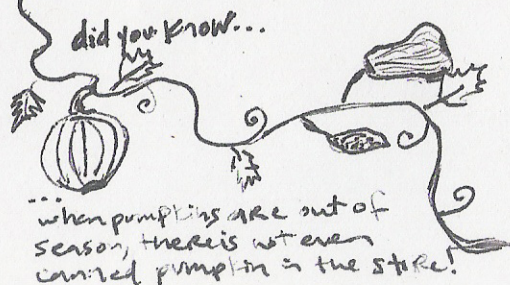 did you know...
...when pumpkins are out of
season, there is not even
canned pumpkin in the store!